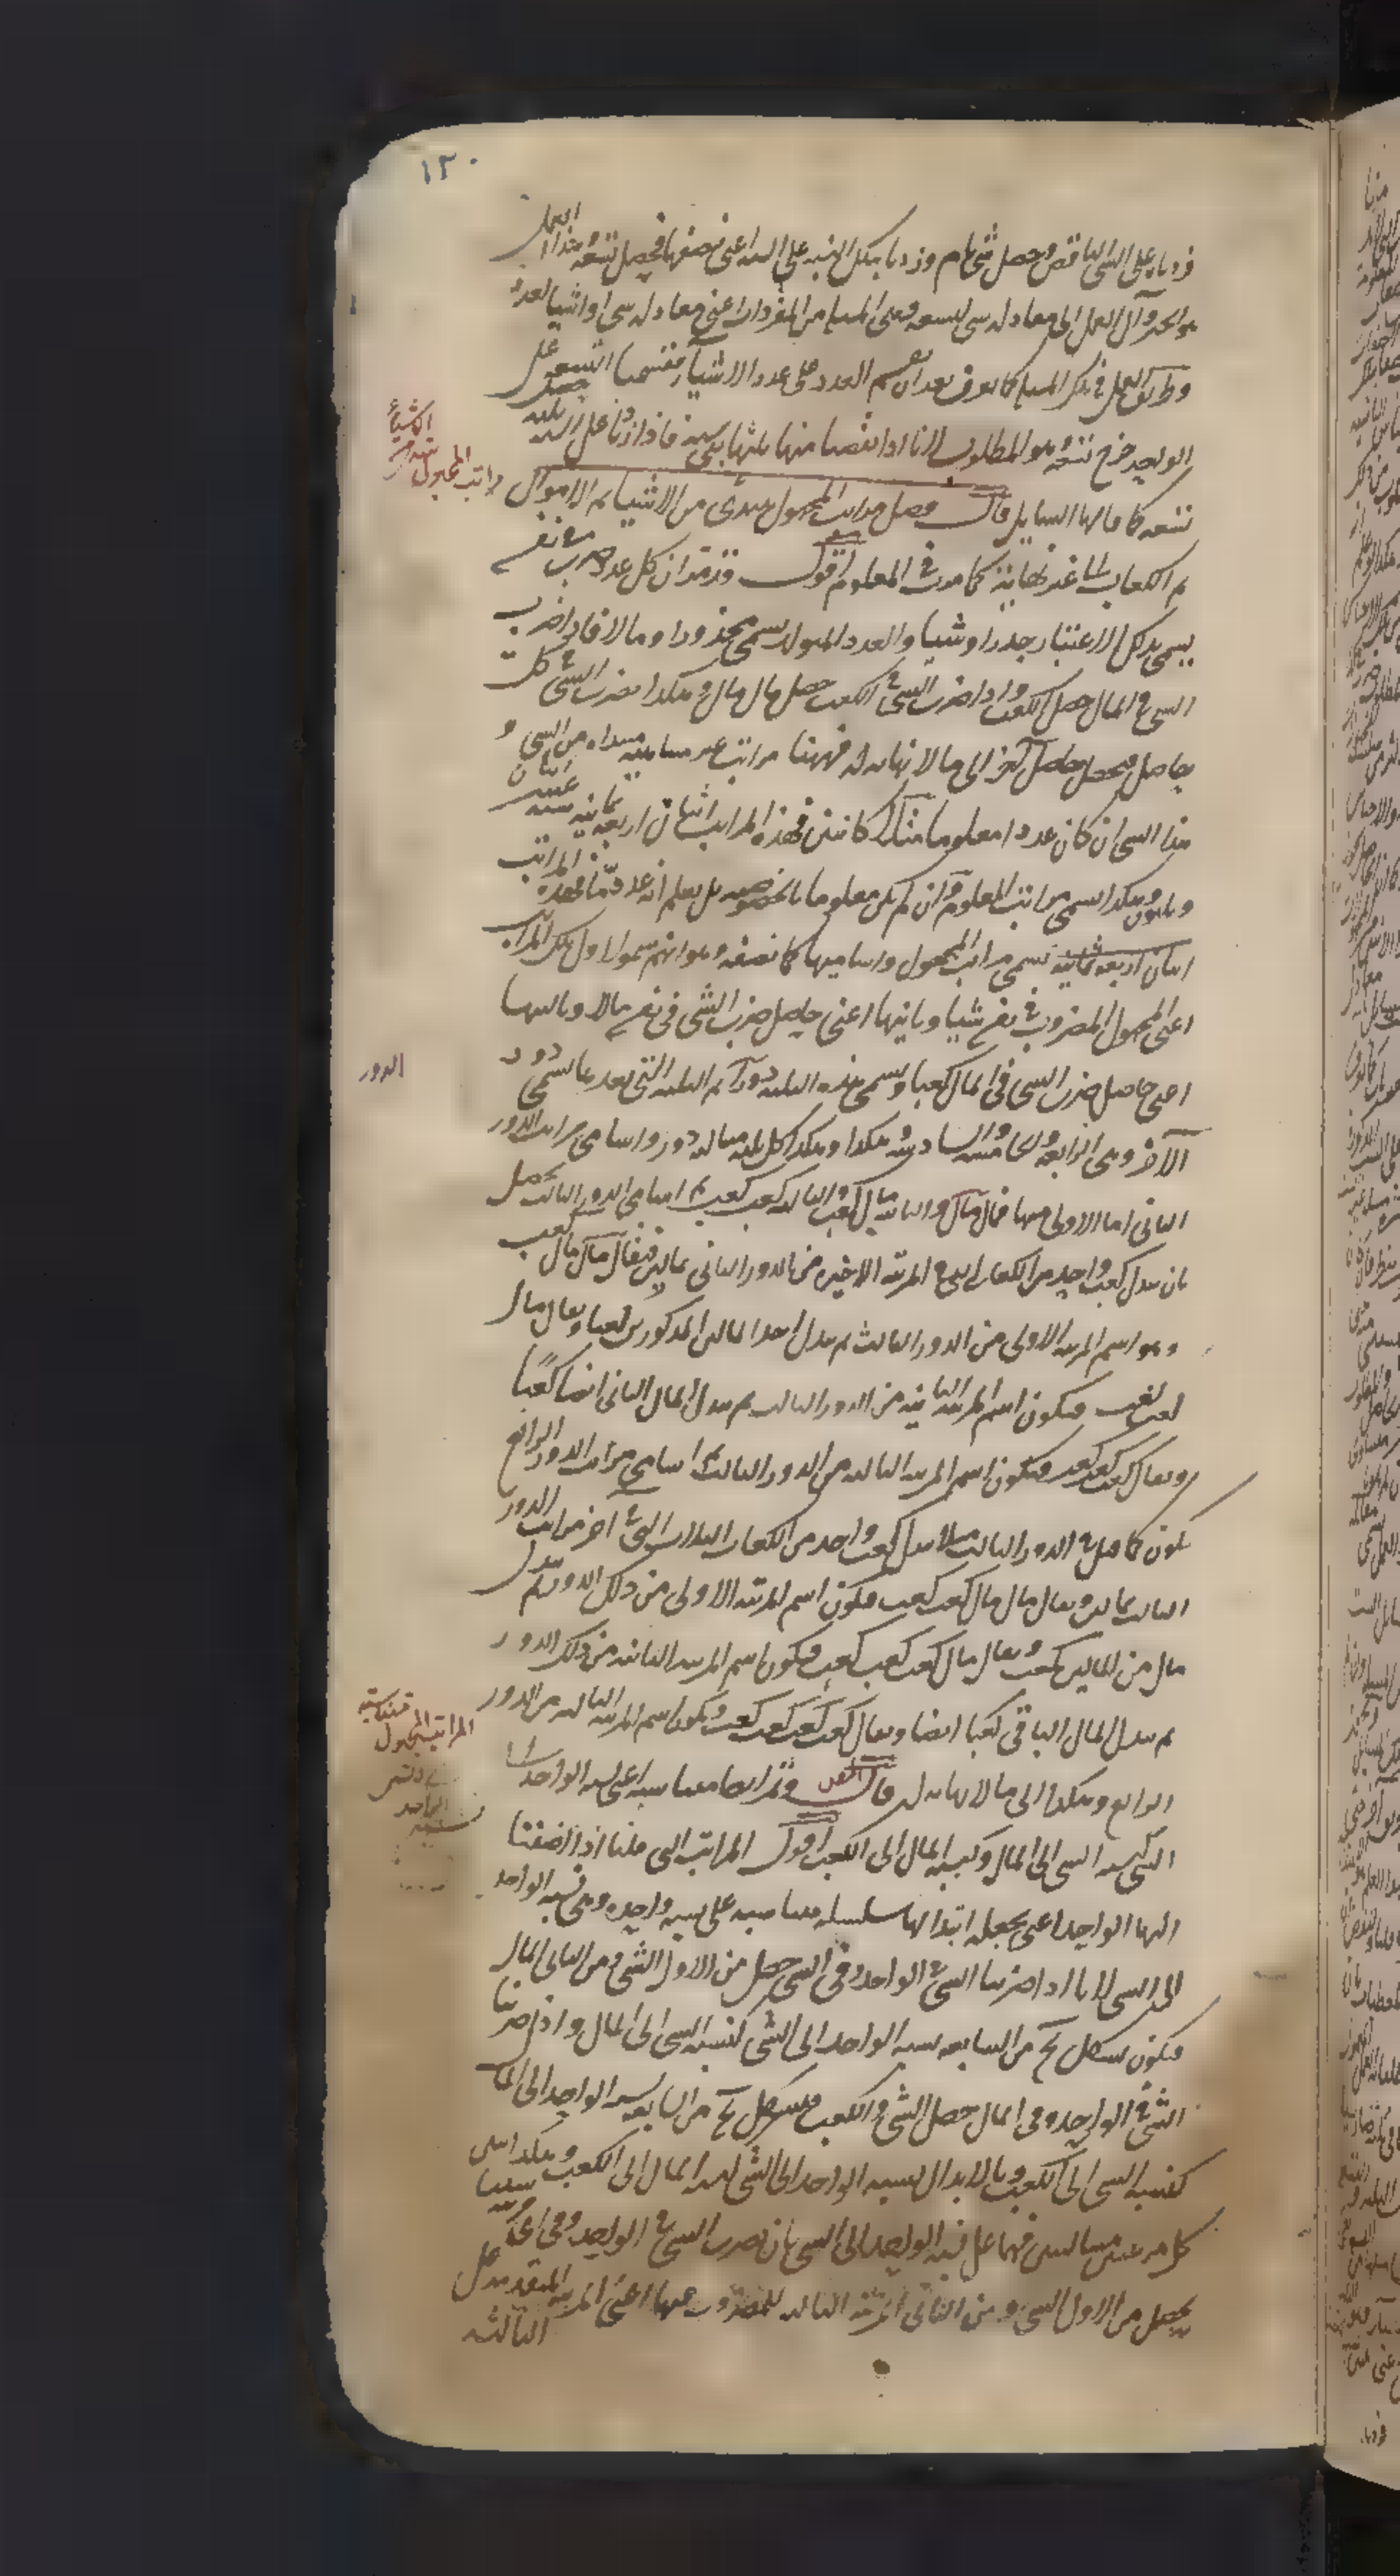 ١٣٠
زدناه على الشي الناقص وحصل شي تام وزدنا بتلك النسبة على الستة اعني نصفها فحصل تسعة هذا العمل
هو الجبر وآل العمل الى معادلة شي لتسعة وهى المسلة من المفردات اعني معادلة شي او اشيا لعدد
وطريق العمل في تلك المسلة كما يعرف بعد ان يقسم العدد على عدد الاشيا فقسمنا التسعة على
الواحد خرج تسعة هو المطلوب لانا اذا نقصنا منها ثلثها بقى ستة فاذا زدنا على الستة ثلثة حصل
تسعة كما قالها السايل قال فصل مراتب المجهول تبتدى من الاشيا ثم الاموال
ثم الكعاب الى غير نهاية كما مرت في المعلوم اقول وقد مر ان كل عدد ضرب في نفسه
يسمى بذلك الاعتبار جذرا وشيا والعدد المتولد يسمى مجذورا ومالا فاذا ضرب
الشي في المال حصل الكعب واذا ضرب الشي في الكعب حصل مال مال وهكذا يضرب الشي في كل
حاصل ويحصل حاصل آخر الى ما لا نهاية له فههنا مراتب غير متناهية مبتداه من الشي و
هذا الشي ان كان عددا معلوما مثلا كاثنين فهذه المراتب اثنان اربعة ثمانية ستة عشر اثنان
وثلثون وهكذا تسمى مراتب المعلوم وان لم يكن معلوما بالخصوصية بل يعلم انه عدد ما فهذه المراتب
تسمى مراتب المجهول واساميها كما نصفه وهو انهم سموا الاول تلك المراتب
اعني المجهول المضروب في نفسه شيا وثانيها اعني حاصل ضرب الشي في نفسه مالا وثالثها
اعني حاصل ضرب الشي في المال كعبا ويسمى هذه الثلثة دورا ثم الثلثة التي بعدها تسمى دور
الآخر وهى الرابعة والخامسة والسادسة وهكذا وهكذا كل ثلثة متتالية دور واسامى مراتب الدور
الثاني اما الاولى منها فمال مال والثانية مال كعب والثالثة كعب كعب ثم اسامى الدور الثالث يحصل
بان يبدل كعب واحد من الكعاب التي في المرتبة الاخيرة من الدور الثاني بمالين فيقال مال مال كعب
وهو اسم المرتبة الاولى من الدور الثالث ثم يبدل احد المالين المذكورين كعبا ويقال مال
كعب كعب فيكون اسم المرتبة الثانية من الدور الثالث ثم يبدل المال الثاني ايضا كعبا
ويقال كعب كعب كعب فيكون اسم المرتبة الثالثة من الدور الثالث ثم اسامى مراتب الدور الرابع
تكون كما قيل في الدور الثالث مثلا يبدل كعب واحد من الكعاب الثلاث التي في آخر مراتب الدور
الثالث بمالين ويقال مال مال كعب كعب فيكون اسم المرتبة الاولى من ذلك الدور ثم يبدل
مال من المالين بكعب ويقال مال كعب كعب كعب فيكون اسم المرتبة الثانية من ذلك الدور
ثم يبدل المال الباقي كعبا ايضا ويقال كعب كعب كعب كعب ويكون اسم المرتبة الثالثة من الدور
الرابع وهكذا الى ما لا نهاية له قال وهى ايضا متناسبة اعني نسبة الواحد الى
الشي كنسبة الشي الى المال وكنسبة المال الى الكعب اقول المراتب التي قلنا اذا اضفنا
اليها الواحد اعني بجعله ابتدائها سلسلة متناسبة على نسبة واحدة وهى نسبة الواحد
الى الشي لانا اذا ضربنا الشي في الواحد وفي الشي حصل من الاول الشي ومن الثاني المال
فيكون بشكل من السابعة نسبة الواحد الى الشي كنسبة الشي الى المال واذا ضربنا
الشي في الواحد وفي المال حصل الشي والكعب فبشكل من السابعة نسبة الواحد الى المال
كنسبة الشي الى الكعب وبالابدال نسبة الواحد الى الشي كنسبة المال الى الكعب وهكذا
كل مرتبتين متتاليتين فهما على نسبة الواحد الى الشي بان نضرب الشي في الواحد وفي
يحصل من الاول الشي ومن الثاني المرتبة التالية للمضروب فيها اعني المرتبة المتقدمة على
الثالثة
الاشياء
مراتب المجهول
الدور
المراتب المجهول متناسبة